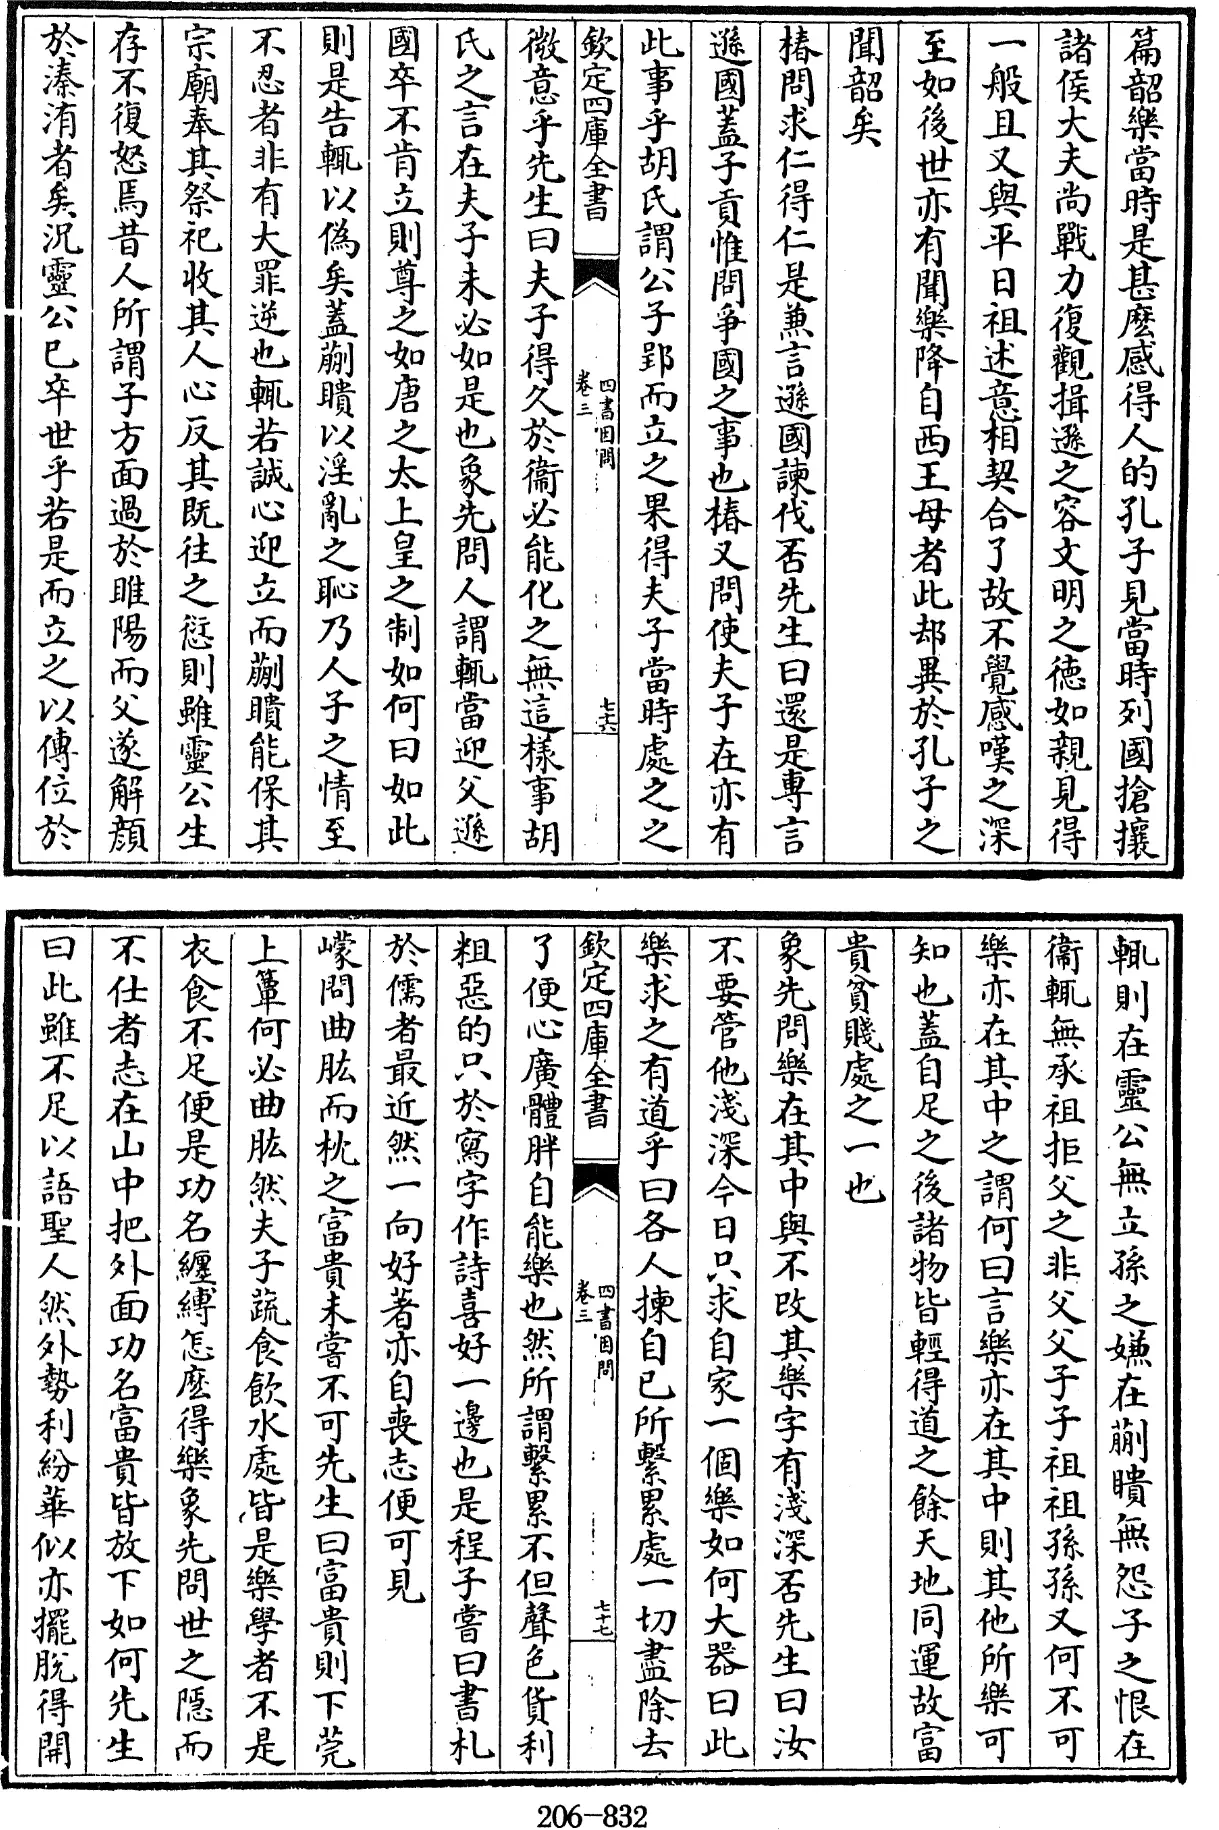 篇韶樂當時是甚麽感得人的孔子見當時列國搶攘
諸侯大夫尚戰力復觀揖遜之容文明之德如親見得
一般且又與平日祖述意相契合了故不覺感嘆之深
至如後世亦有聞樂降自西王母者此却異於孔子之
聞韶矣
椿問求仁得仁是兼言遜國諫伐否先生曰還是專言
遜國蓋子貢惟問爭國之事也椿又問使夫子在亦有
此事乎胡氏謂公子郢而立之果得夫子當時處之之
欽定四庫全書
四書因問
卷三
七六
微意乎先生曰夫子得久於衞必能化之無這樣事胡
氏之言在夫子未必如是也象先問人謂輒當迎父遜
國卒不肯立則尊之如唐之太上皇之制如何曰如此
則是告輒以偽矣蓋蒯聵以淫亂之恥乃人子之情至
不忍者非有大罪逆也輒若誠心迎立而蒯聵能保其
宗廟奉其祭祀收其人心反其既往之愆則雖靈公生
存不復怒焉昔人所謂子方面過於睢陽而父遂解顔
於溱洧者矣況靈公已卒世乎若是而立之以傳位於
輒則在靈公無立孫之嫌在蒯聵無怨子之恨在
衞輒無承祖拒父之非父父子子祖祖孫孫又何不可
樂亦在其中之謂何曰言樂亦在其中則其他所樂可
知也蓋自足之後諸物皆輕得道之餘天地同運故富
貴貧賤處之一也
象先問樂在其中與不改其樂字有淺深否先生曰汝
不要管他淺深今日只求自家一個樂如何大器曰此
樂求之有道乎曰各人揀自已所繫累處一切盡除去
欽定四庫全書
四書因問
卷三
七十七
了便心廣體胖自能樂也然所謂繫累不但聲色貨利
粗惡的只於寫字作詩喜好一邊也是程子嘗曰書札
於儒者最近然一向好著亦自喪志便可見
㠓問曲肱而枕之富貴未嘗不可先生曰富貴則下莞
上簟何必曲肱然夫子蔬食飲水處皆是樂學者不是
衣食不足便是功名纏縛怎麽得樂象先問世之隱而
不仕者志在山中把外面功名富貴皆放下如何先生
曰此雖不足以語聖人然外勢利紛華似亦擺脫得開
206-832